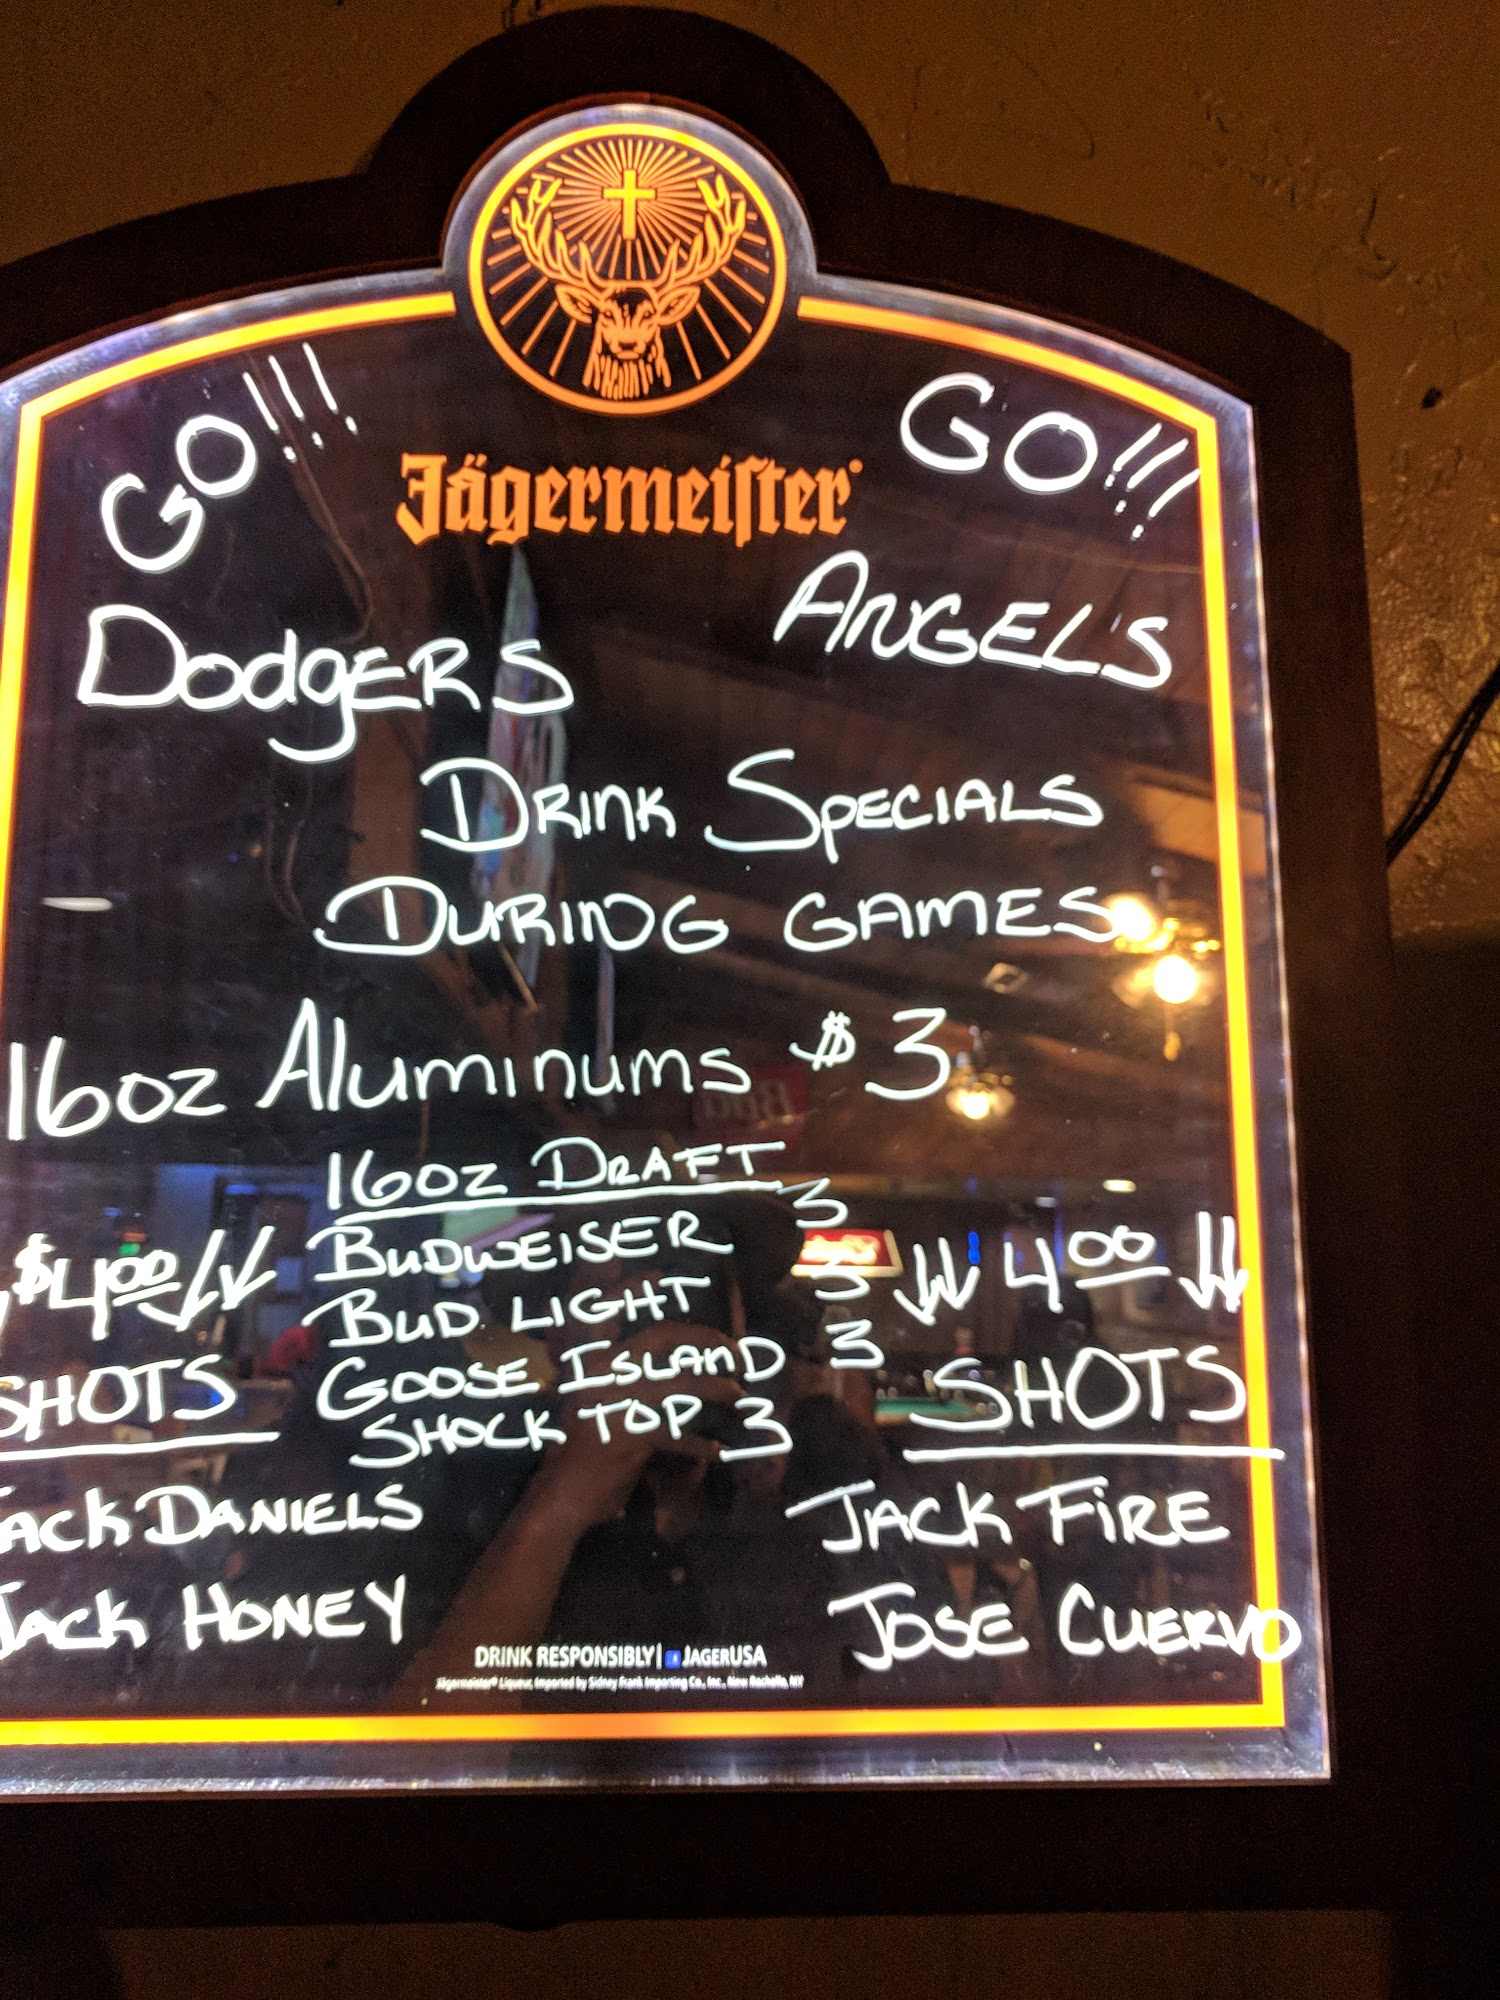 GO!!!
GO!!!
Jägermeister
DodgERS
ANGELS
DRINK SPECIALS
DURING GAMES
16oz Aluminums $3
16oz DRAFT
BUDWEISER 3
BUD LIGHT 3
GOOSE ISLAND 3
SHOCK TOP 3
$4.00
SHOTS
JACK DANIELS
JACK HONEY
4.00
SHOTS
JACK FiRE
JOSE CUERVO
DRINK RESPONSIBLY| JAGERUSA
Jägermeister® Liqueur, Imported by Sidney Frank Importing Co., Inc., New Rochelle, NY